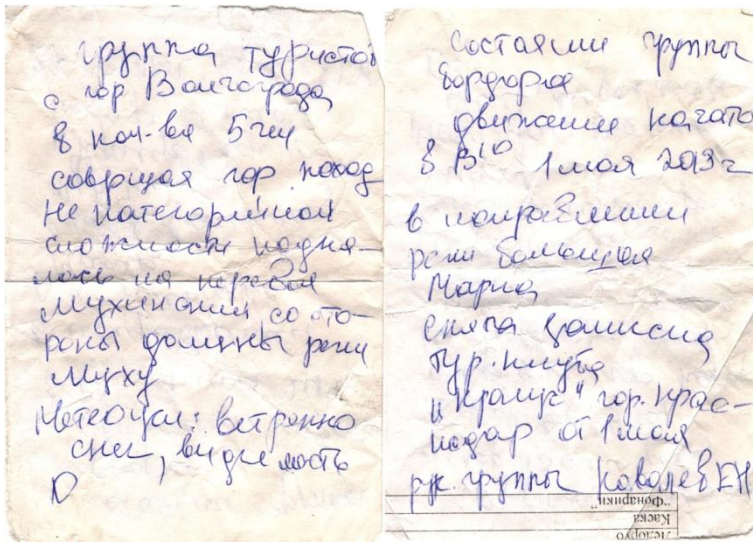 группа туристов
с гор Волгограда
в кол-ве 5 чел
соврщая гор поход
не категорийной
сложности подня-
лась на перевал
Мухинский со сто-
роны долины реки
Муху
Метеоусл: ветренно
снег, видимость
0
Состояни группы
бодрое
движение начато
в 8 10 1 мая 2013 г
в направлении
реки большая
Марка
снята записка
тур. клуба
"Крокус" гор. Крас-
нодар от 1 мая
рук. группы Ковалев ЕН
"Фонарики"
Каска